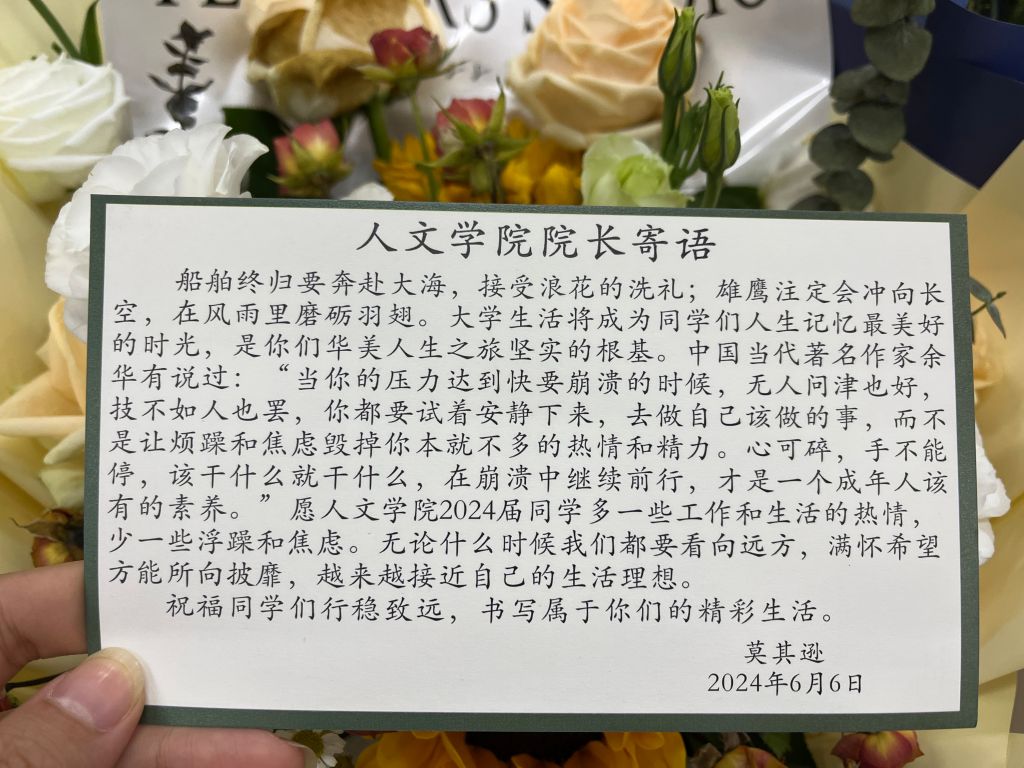 人文学院院长寄语
船舶终归要奔赴大海，接受浪花的洗礼；雄鹰注定会冲向长
空，在风雨里磨砺羽翅。大学生活将成为同学们人生记忆最美好
的时光，是你们华美人生之旅坚实的根基。中国当代著名作家余
华有说过：“当你的压力达到快要崩溃的时候，无人问津也好，
技不如人也罢，你都要试着安静下来，去做自己该做的事，而不
是让烦躁和焦虑毁掉你本就不多的热情和精力。心可碎，手不能
停，该干什么就干什么，在崩溃中继续前行，才是一个成年人该
有的素养。”愿人文学院2024届同学多一些工作和生活的热情，
少一些浮躁和焦虑。无论什么时候我们都要看向远方，满怀希望
方能所向披靡，越来越接近自己的生活理想。
祝福同学们行稳致远，书写属于你们的精彩生活。
莫其逊
2024年6月6日